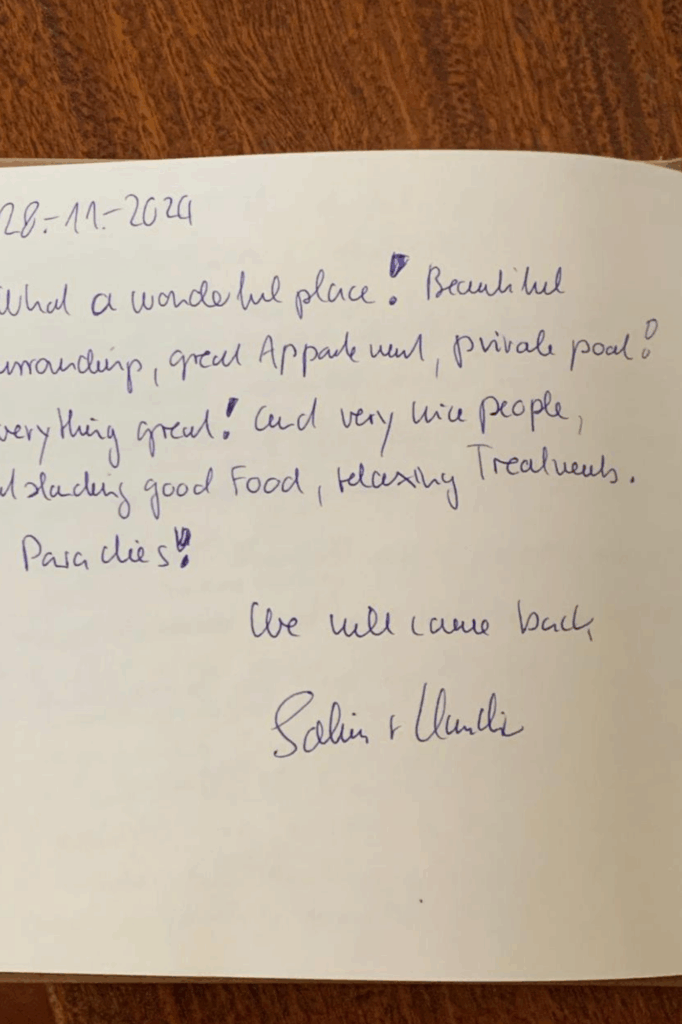 28.-11.-2024
What a wonderful place! Beautiful
urrounding, great Appartement, private pool!
verything great! and very nice people,
utstanding good Food, relaxing Treatments.
Paradies!!
We will come back
+